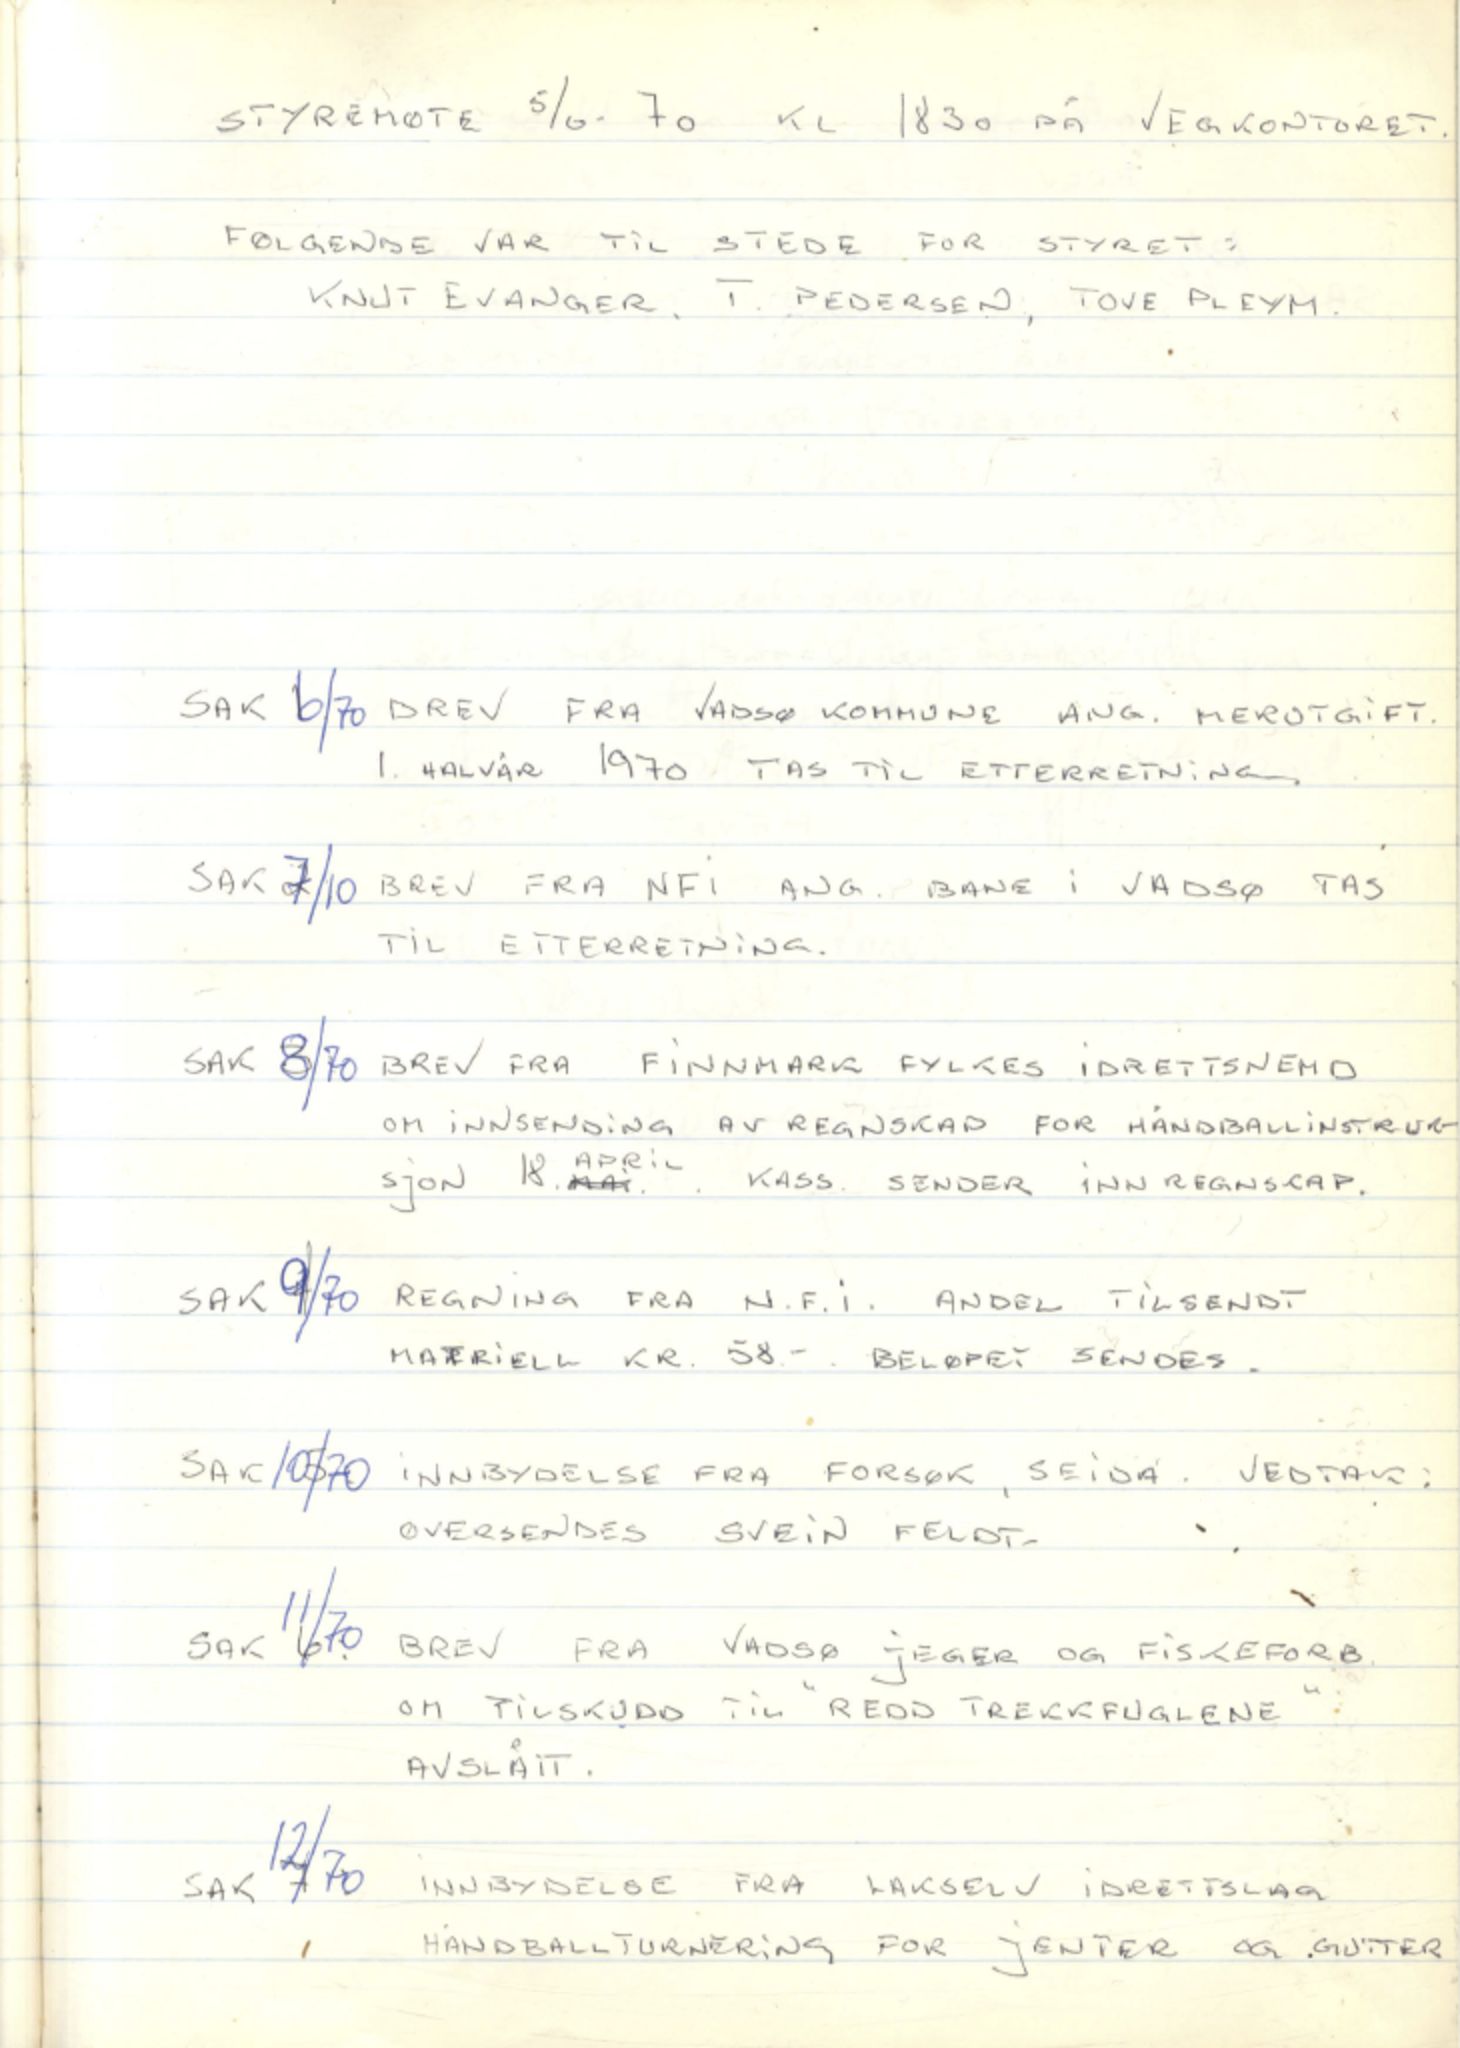 STYREMØTE 5/6-70 KL 1830 PÅ VEGKONTORET.
FØLGENDE VAR TIL STEDE FOR STYRET:
KNUT EVANGER, T. PEDERSEN, TOVE PLEYM.
SAK 6/70 BREV FRA VADSØ KOMMUNE ANG. MERUTGIFT.
1. HALVÅR 1970 TAS TIL ETTERRETNING.
SAK 7/70 BREV FRA NFI ANG. BANE I VADSØ TAS
TIL ETTERRETNING.
SAK 8/70 BREV FRA FINNMARK FYLKES IDRETTSNEMD
OM INNSENDING AV REGNSKAP FOR HÅNDBALLINSTRUK-
SJON 18. APRIL. KASS. SENDER INN REGNSKAP.
SAK 9/70 REGNING FRA N.F.I. ANDEL TILSENDT
MATRIELL KR. 58.-. BELØPET SENDES.
SAK 10/70 INNBYDELSE FRA FORSØK, SEIDA. VEDTAK:
OVERSENDES SVEIN FELDT.
SAK 11/70 BREV FRA VADSØ JEGER OG FISKEFORB.
OM TILSKUDD TIL "REDD TREKKFUGLENE"
AVSLÅTT.
SAK 12/70 INNBYDELSE FRA LAKSELV IDRETTSLAG
HÅNDBALLTURNERING FOR JENTER OG GUTTER